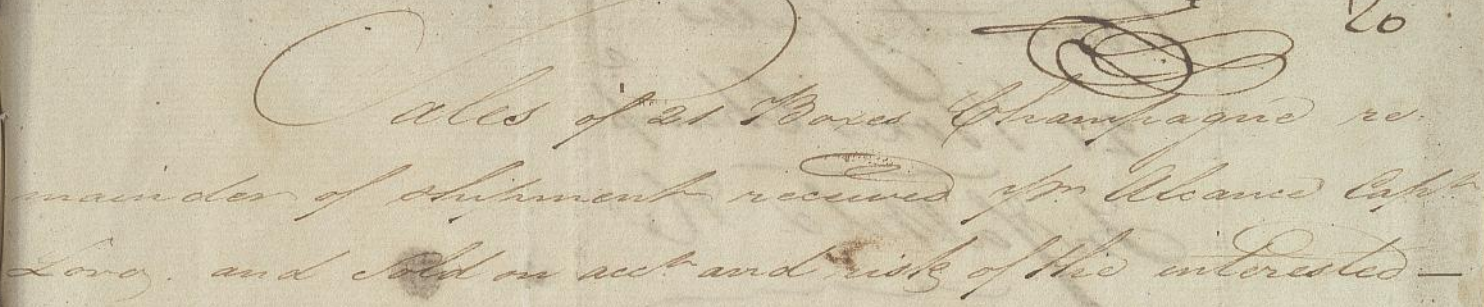 20
Sales of 21 Boxes Champagne re-
mainder of shipment received pr. Alcance Captn
and Sold on acct. and risk of the interested —